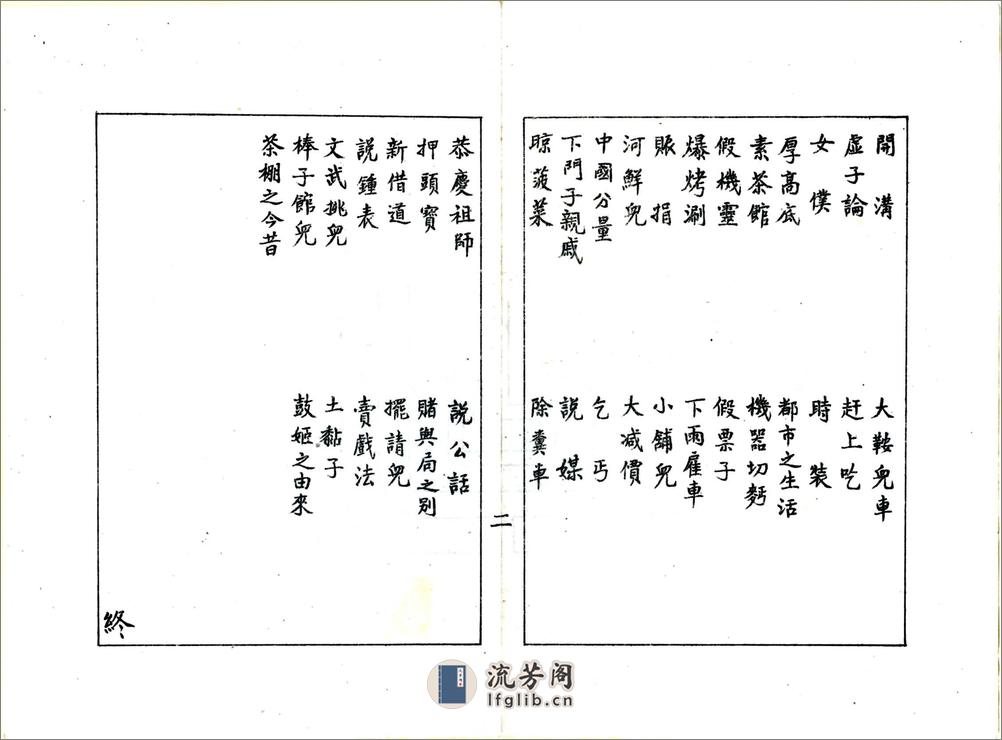 開溝
大鞍兒車
虛子論
赶上吃
女僕
時裝
厚高底
都市之生活
素茶館
機器切麪
假機靈
假票子
爆烤涮
下雨雇車
賑捐
小舖兒
河鮮兒
大减價
中國分量
乞丐
下門子親戚
說媒
晾菠菜
除糞車
二
恭慶祖師
說公話
押頭寶
賭與局之別
新借道
擺請兒
說鍾表
賣戲法
文武挑兒
土黏子
棒子館兒
鼓姬之由來
茶棚之今昔
終
流芳阁
lfglib.cn